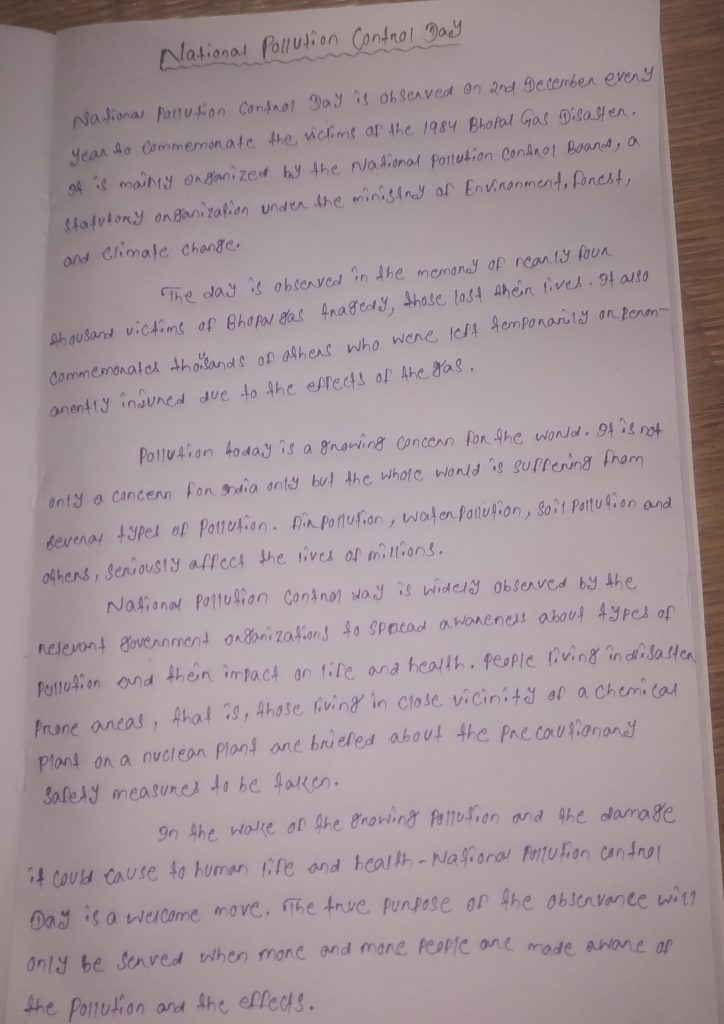 National Pollution Control Day
National Pollution Control Day is observed on 2nd December every
year to commemorate the victims of the 1984 Bhopal Gas Disaster.
It is mainly organized by the National Pollution Control Board, a
statutory organization under the ministry of Environment, forest,
and climate change.
The day is observed in the memory of nearly four
thousand victims of Bhopal gas tragedy, those lost their lives. It also
commemorates thousands of others who were left temporarily or perm-
anently injured due to the effects of the gas.
Pollution today is a growing concern for the world. It is not
only a concern for India only but the whole world is suffering from
several types of pollution. Air pollution, water pollution, soil pollution and
others, seriously affect the lives of millions.
National Pollution Control day is widely observed by the
relevant government organizations to spread awareness about types of
pollution and their impact on life and health. People living in disaster
prone areas, that is, those living in close vicinity of a chemical
plant or a nuclear plant are briefed about the precautionary
safety measures to be taken.
In the wake of the growing pollution and the damage
it could cause to human life and health - National Pollution Control
Day is a welcome move. The true purpose of the observance will
only be served when more and more people are made aware of
the pollution and the effects.